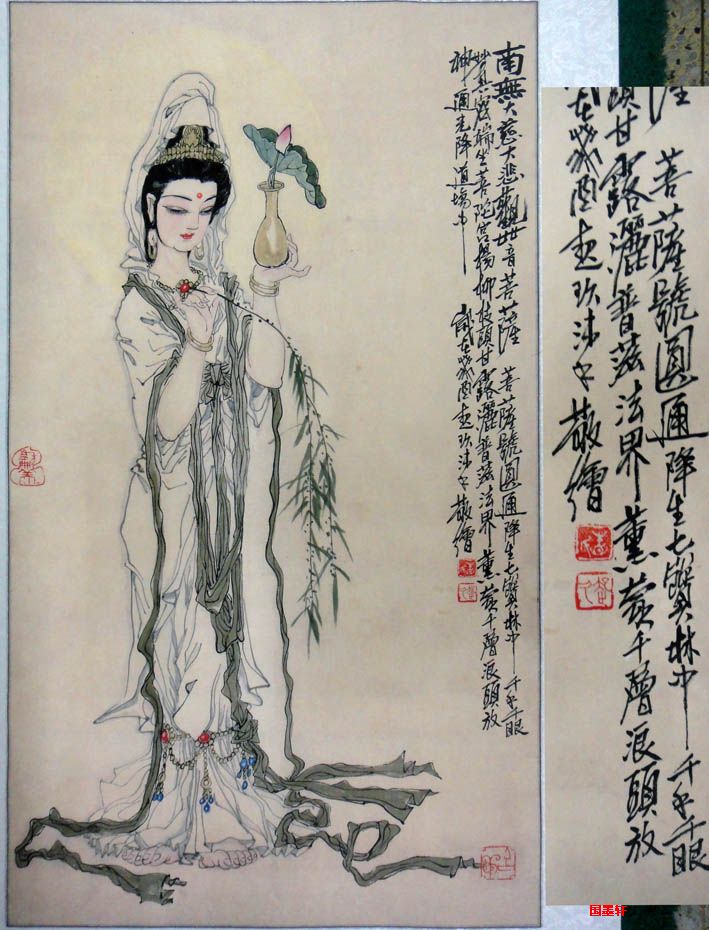 南無大慈大悲觀世音菩薩 菩薩號圓通降生七寶林中千手千眼
妙真容端坐普陀宮楊柳枝頭甘露灑普滋法界薰蒙千層浪頭放
神通光降道場中 歲在癸酉沐手敬繪
薩 菩薩號圓通降生七寶林中千手千眼
頭甘露灑普滋法界薰蒙千層浪頭放
在癸酉沐手敬繪
国墨轩